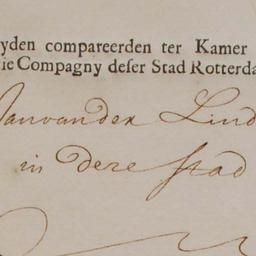 yden compareerden ter Kamer
ie Compagny deſer Stad Rotterda
Janvander Lind
in dese stad